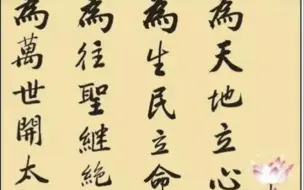 為天地立心
為生民立命
為往聖繼絕
為萬世開太